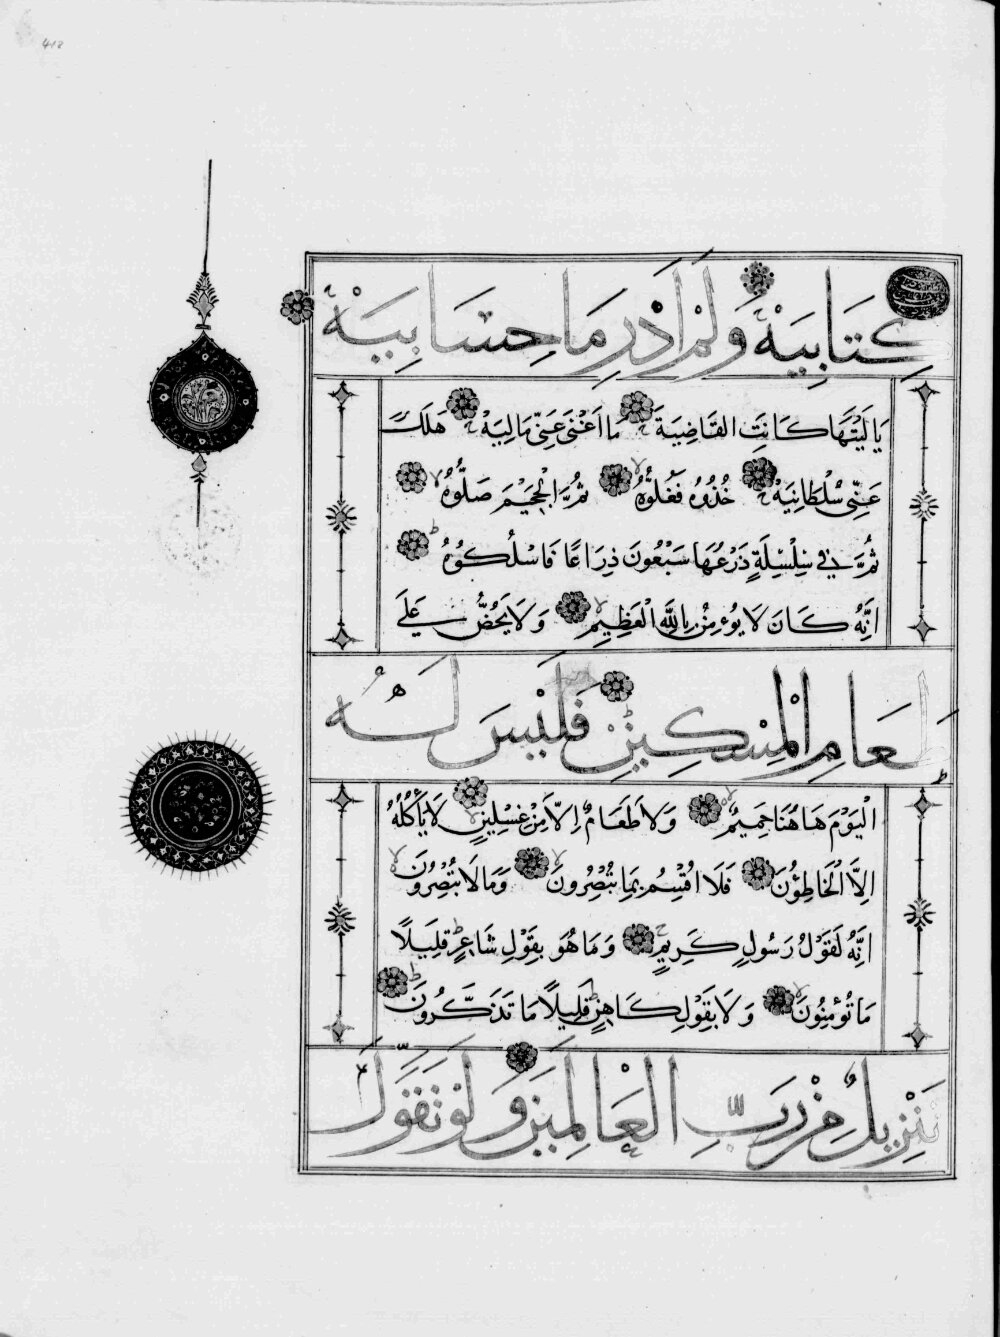 كِتَابِيَهْ وَلَمْ اَدْرِ مَا حِسَابِيَهْ
يَا لَيْتَهَا كَانَتِ القَاضِيَةَ مَا اَغْنَى عَنِّى مَالِيَهْ هَلَكَ
عَنِّى سُلْطَانِيَهْ خُذُوُهُ فَغُلُّوُهُ ثُمَّ الْجَحِيْمَ صَلُّوُهُ
ثُمَّ فِي سِلْسِلَةٍ ذَرْعُهَا سَبْعُونَ ذِرَاعًا فَاسْلُكُوُهُ
اِنَّهُ كَانَ لَا يُؤْمِنُ بِاللَّهِ الْعَظِيمِ وَلَا يَحُضُّ عَلَى
طَعَامِ الْمِسْكِينِ فَلَيْسَ لَهُ
الْيَوْمَ هَاهُنَا حَمِيمٌ وَلَا طَعَامٌ اِلَّا مِنْ غِسْلِينٍ لَا يَأْكُلُهُ
اِلَّا الْخَاطِؤُنَ فَلَا اُقْسِمُ بِمَا تُبْصِرُونَ وَمَا لَا تُبْصِرُونَ
اِنَّهُ لَقَوْلُ رَسُولٍ كَرِيمٍ وَمَا هُوَ بِقَوْلِ شَاعِرٍ قَلِيلًا
مَا تُؤْمِنُونَ وَلَا بِقَوْلِ كَاهِنٍ قَلِيلًا مَا تَذَكَّرُونَ
تَنْزِيلٌ مِنْ رَبِّ الْعَالَمِينَ وَلَوْ تَقَوَّلَ